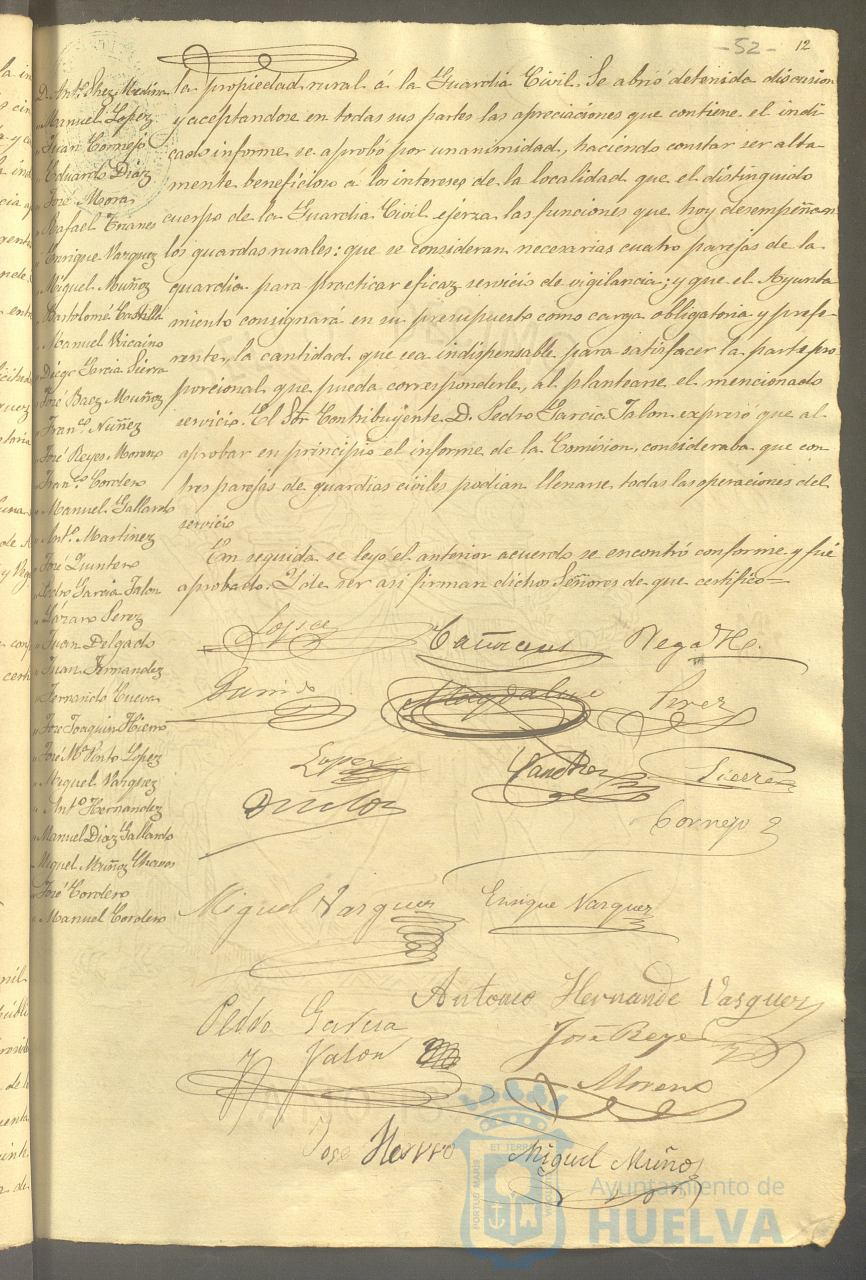 - 52 - 12
D. Antº Shez Medina
" Manuel Lopez
" Juan Cornejo
" Eduardo Diaz
" José Mora
" Rafael
" Enrique Vazquez
" Miguel Muñoz
" Bartolomé Castilla
" Manuel Vizcaino
" Diego Garcia Sierra
" José Baez Muñoz
" Franco. Nuñez
" José Reyes Moreno
" Franco. Cordero
" Manuel Gallardo
" Anto. Martinez
" José Quintero
" Pedro Garcia Jalon
" Lázaro Perez
" Juan Delgado
" Juan Fernandez
" Fernando Cueva
" José Joaquin Hierro
" José Mª Pinto Lopez
" Miguel Vazquez
" Antº Hernandez
" Manuel Diaz Gallardo
" Miguel Muñoz Chaves
" José Cordero
" Manuel Cordero
la propiedad rural á la Guardia Civil. Se abrió detenida discusion
y aceptandose en todas sus partes las apreciaciones que contiene el indi-
cado informe se aprobó por unanimidad, haciendo constar ser alta-
mente beneficioso á los intereses de la localidad que el distinguido
cuerpo de la Guardia Civil ejerza las funciones que hoy desempeñan
los guardas rurales: que se consideran necesarias cuatro parejas de la
guardia para practicar eficaz servicio de vigilancia; y que el Ayunta
miento consignará en su presupuesto como carga obligatoria y prefe-
rente, la cantidad que sea indispensable para satisfacer la parte pro
porcional que pueda corresponderle, al plantearse el mencionado
servicio. El Sor. Contribuyente D. Pedro Garcia Jalon expresó que al
aprobar en principio el informe de la Comision, consideraba que con
tres parejas de guardias civiles podian llenarse todas las operaciones del
servicio
En seguida se leyó el anterior acuerdo se encontró conforme y fué
aprobado. Y de ser asi firman dichos Señores de que certifico=
Vega
Perez
Lopez Sanchez
Cornejo
Miguel Vazquez Enrique Vazquez
Antonio Hernande Vasquez
Pedro Garcia
y Jalon
José Reye
Moreno
Jose Hierro Miguel Muño
PORTUS MARIS ET TERRAE
Ayuntamiento de
HUELVA